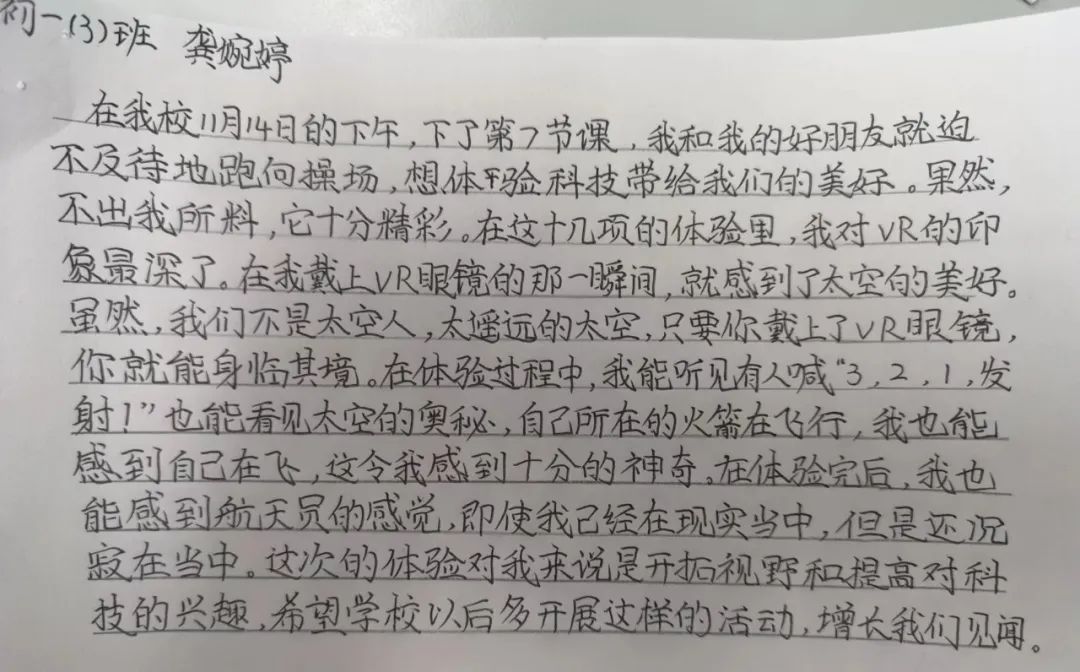 初一(3)班 龚婉婷
在我校11月14日的下午，下了第7节课，我和我的好朋友就迫
不及待地跑向操场，想体验科技带给我们的美好。果然，
不出我所料，它十分精彩。在这十几项的体验里，我对VR的印
象最深了。在我戴上VR眼镜的那一瞬间，就感到了太空的美好。
虽然，我们不是太空人，太遥远的太空，只要你戴上了VR眼镜，
你就能身临其境。在体验过程中，我能听见有人喊“3，2，1，发
射！”也能看见太空的奥秘，自己所在的火箭在飞行，我也能
感到自己在飞，这令我感到十分的神奇。在体验完后，我也
能感到航天员的感觉，即使我已经在现实当中，但是还沉
寂在当中。这次的体验对我来说是开拓视野和提高对科
技的兴趣，希望学校以后多开展这样的活动，增长我们见闻。